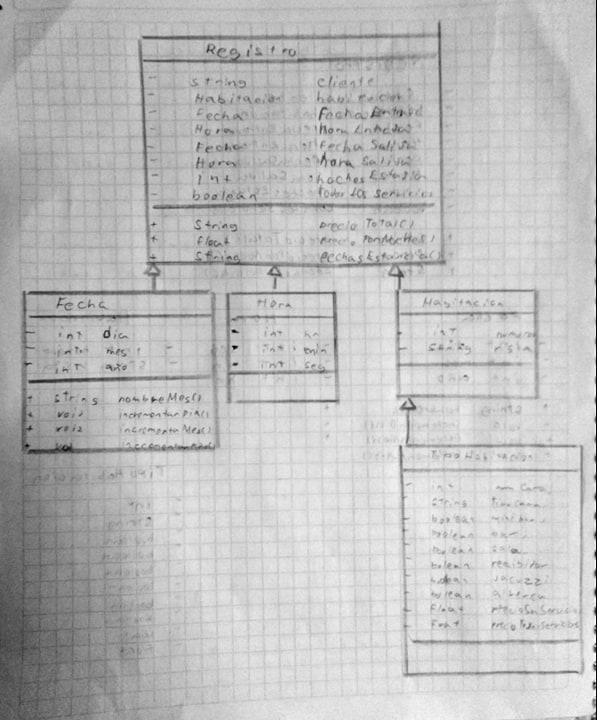 Registro
- String cliente
- Habitacion habitacion
- Fecha Fecha Entrada
- Hora Hora Entrada
- Fecha Fecha Salida
- Hora Hora Salida
- Int noches Estadia
- boolean todos los servicios
+ String precio Total()
+ float precio PorNoches()
+ String
Fecha
- int dia
- int mes
- int año
+ String nombreMes()
+ void incrementarDia()
+ void incrementaMes()
+
Hora
- int hh
- int min
- int seg
Habitacion
- int numero
- String
Tipo Habitacion
- int num Cama
- String tipo cama
- boolean
- bolean
- bolean sala
- bolean recibidor
- bolean Jacuzzi
- bolean alberca
- Float
- Float